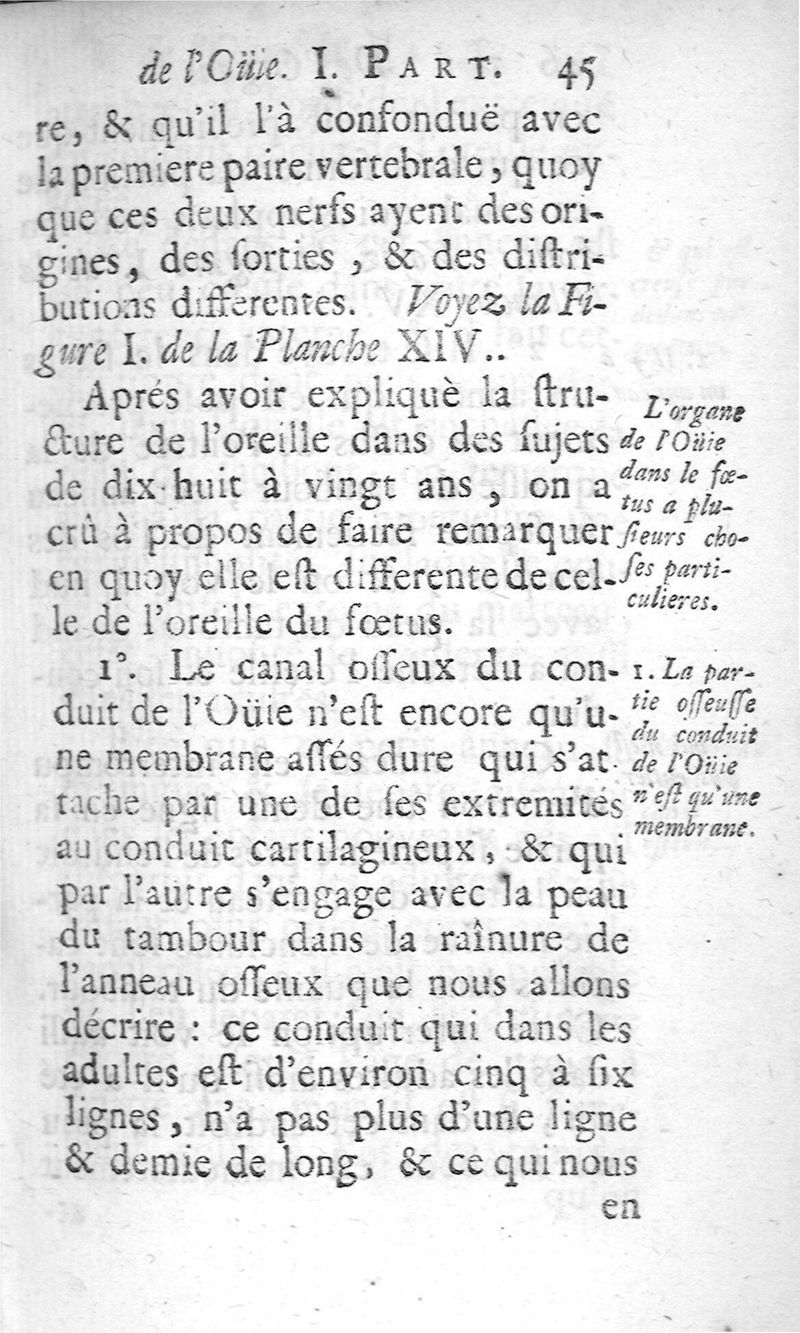 de l'Oüie. I. PART. 45
re, & qu'il l'à confonduë avec
la premiere paire vertebrale, quoy
que ces deux nerfs ayent des ori-
gines, des ſorties, & des diſtri-
butions differentes. Voyez la Fi-
gure I. de la Planche XIV..
Aprés avoir expliquè la ſtru-
cture de l'oreille dans des ſujets
de dix-huit à vingt ans, on a
crû à propos de faire remarquer
en quoy elle eſt differente de cel-
le de l'oreille du fœtus.
L'organe
de l'Oüie
dans le fœ-
tus a plu-
ſieurs cho-
ſes parti-
culieres.
1°. Le canal oſſeux du con-
duit de l'Oüie n'eſt encore qu'u-
ne membrane aſſés dure qui s'at-
tache par une de ſes extremités
au conduit cartilagineux, & qui
par l'autre s'engage avec la peau
du tambour dans la raînure de
l'anneau oſſeux que nous allons
décrire : ce conduit qui dans les
adultes eſt d'environ cinq à ſix
lignes, n'a pas plus d'une ligne
& demie de long, & ce qui nous
1. La par-
tie oſſeuſſe
du conduit
de l'Oüie
n'eſt qu'une
membrane.
en